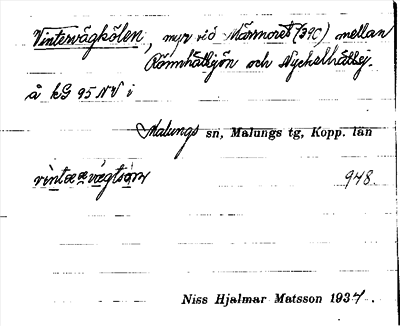 Vintervägkölen, myr vid Mannores (39C) mellan
Römhåltjön och Nyckelhåltj.
å kG 95 NV i
Malungs sn, Malungs tg, Kopp. län
948.
Niss Hjalmar Matsson 1934.